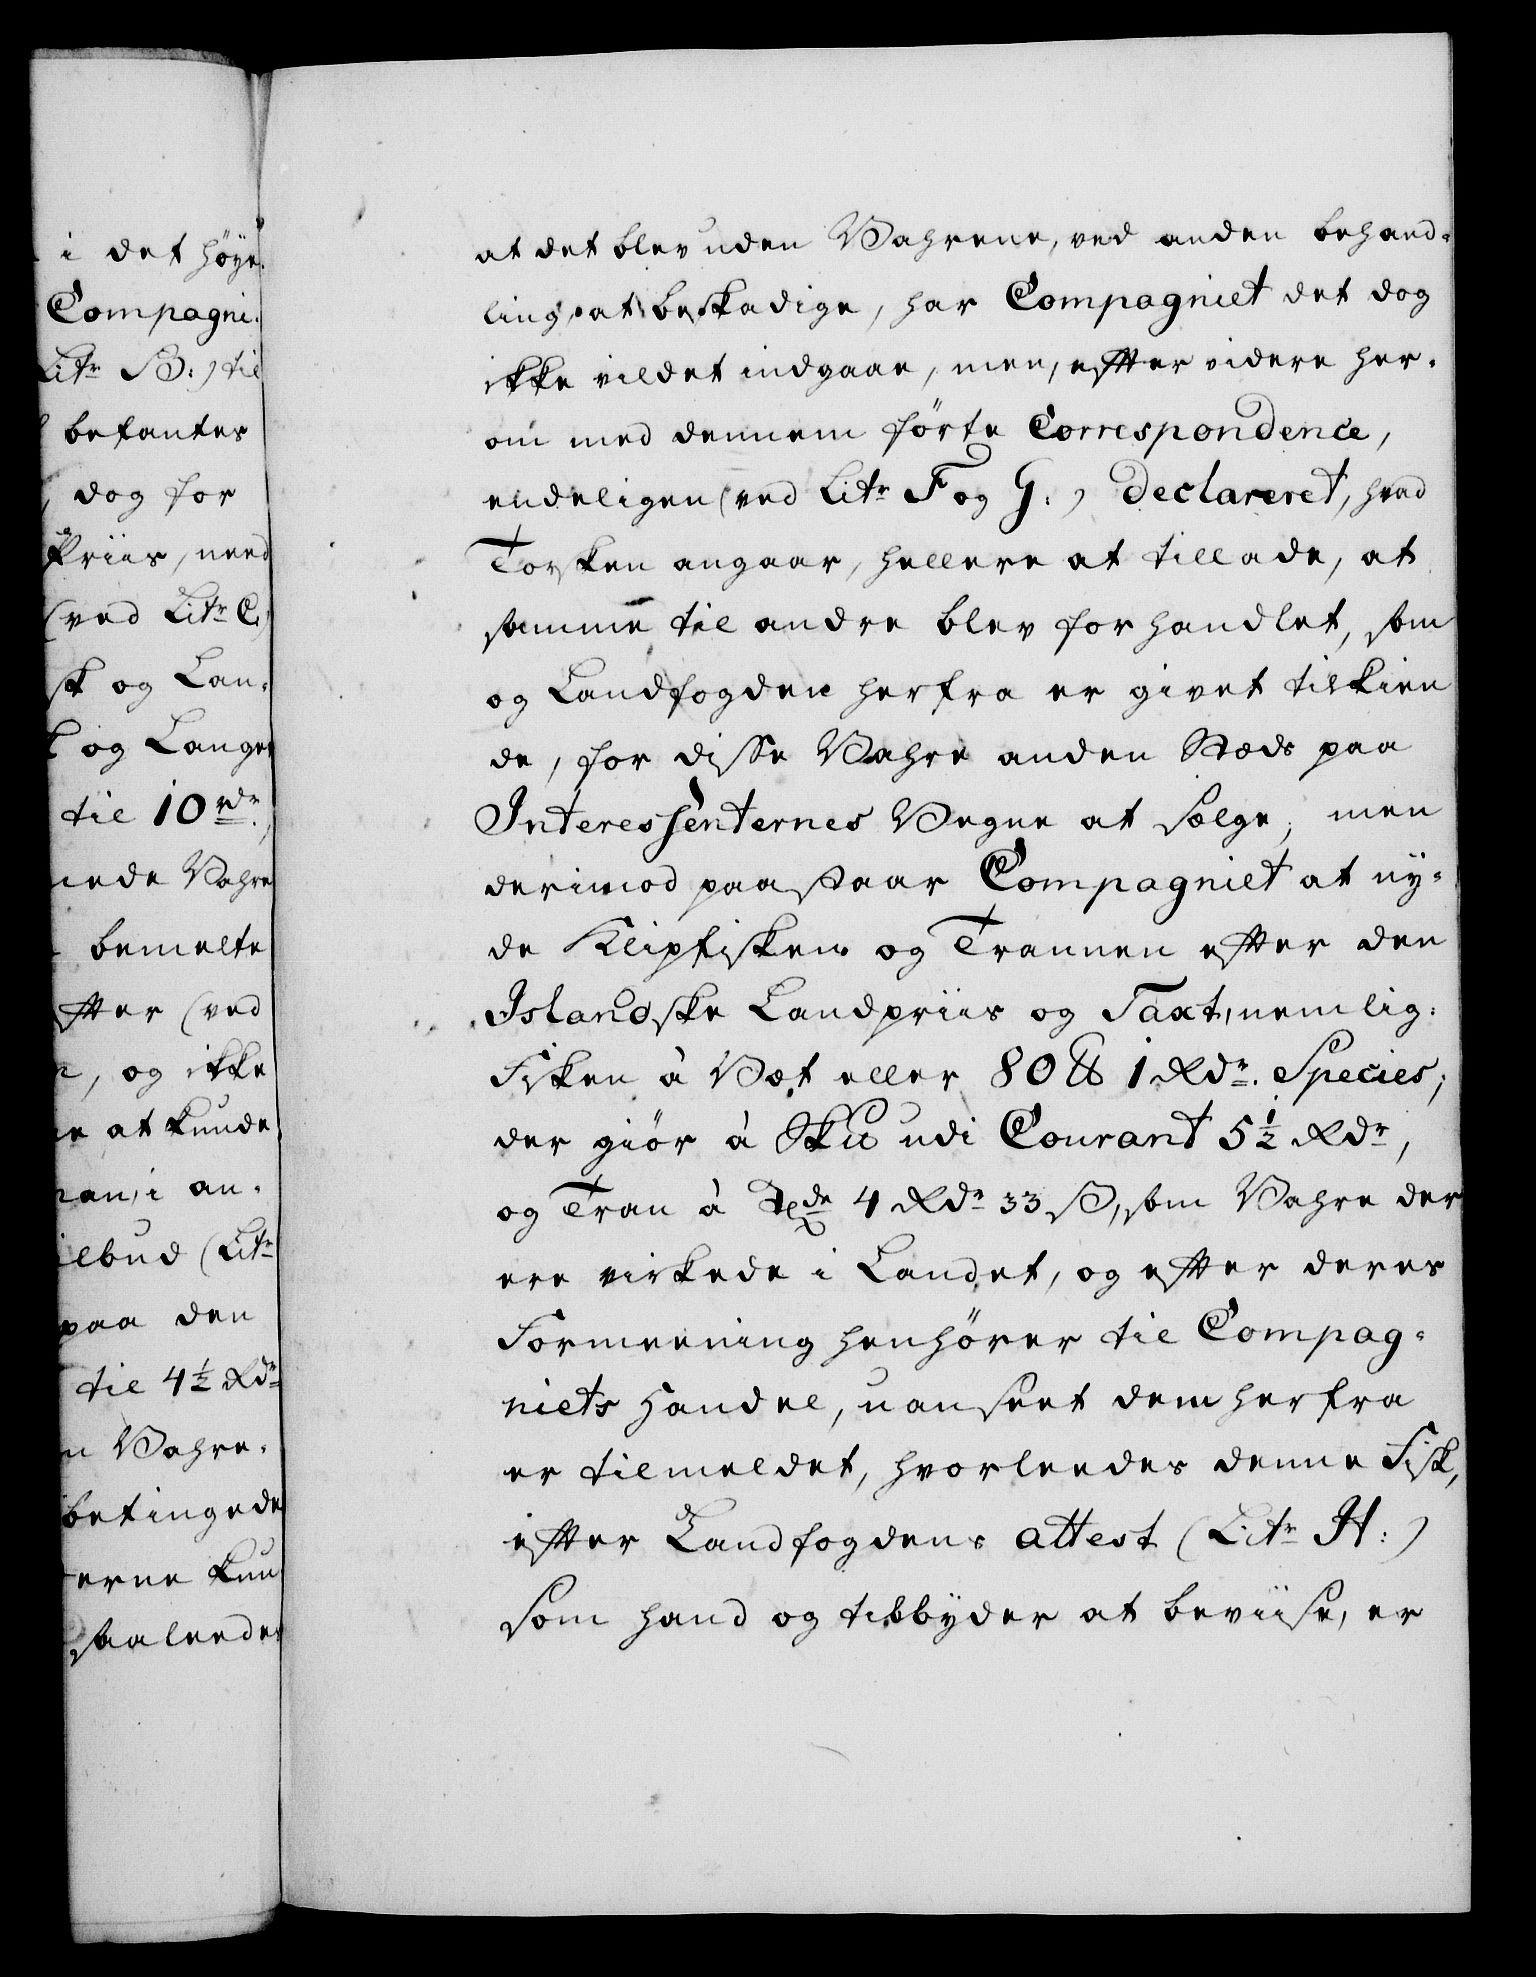 i det höye
Compagni
Litr B:) til
befantes
dog for
Priis, need
(ved Litr C.)
sk og Lan-
og Langer
til 10 rdr.
Vahre
bemelte
ffter (ved
, og ikke
at kunde
i an-
ilbud (Litr
paa den
til 4½ Rdr
Vahre-
betingede
erne kun
saaleedes
at det blev uden Vahrene, ved anden behand-
ling, at beskadige, har Compagniet det dog
ikke vildet indgaae, men, effter videre her-
om med dennem förte Correspondence,
endeligen (ved Litr F og G:) declareret, hvad
Torsken angaar, hellere at tillade, at
samme til andre blev forhandlet, som
og Landfogden herfra er givet tilkien
de, for disse Vahre anden Stæds paa
Interessenternes Vegne at sælge; men
derimod paastaar Compagniet at ny-
de Klipfisken og Trannen effter den
Islandske Landpriis og Taxt, nemlig:
Fisken à Væt eller 80 ℔ 1 Rdr. Species;
der giör à Sk℔ udi Courant 5½ Rdr,
og Tran à Tde 4 Rdr 33 ß, som Vahre der
ere virkede i Landet, og effter deres
Formeening henhörer til Compag-
niets Handel, uanseet dem herfra
er tilmeldet, hvorleedes denne Fisk,
effter Landfogdens attest (Litr H:)
som hand og tilbyder at beviise, er